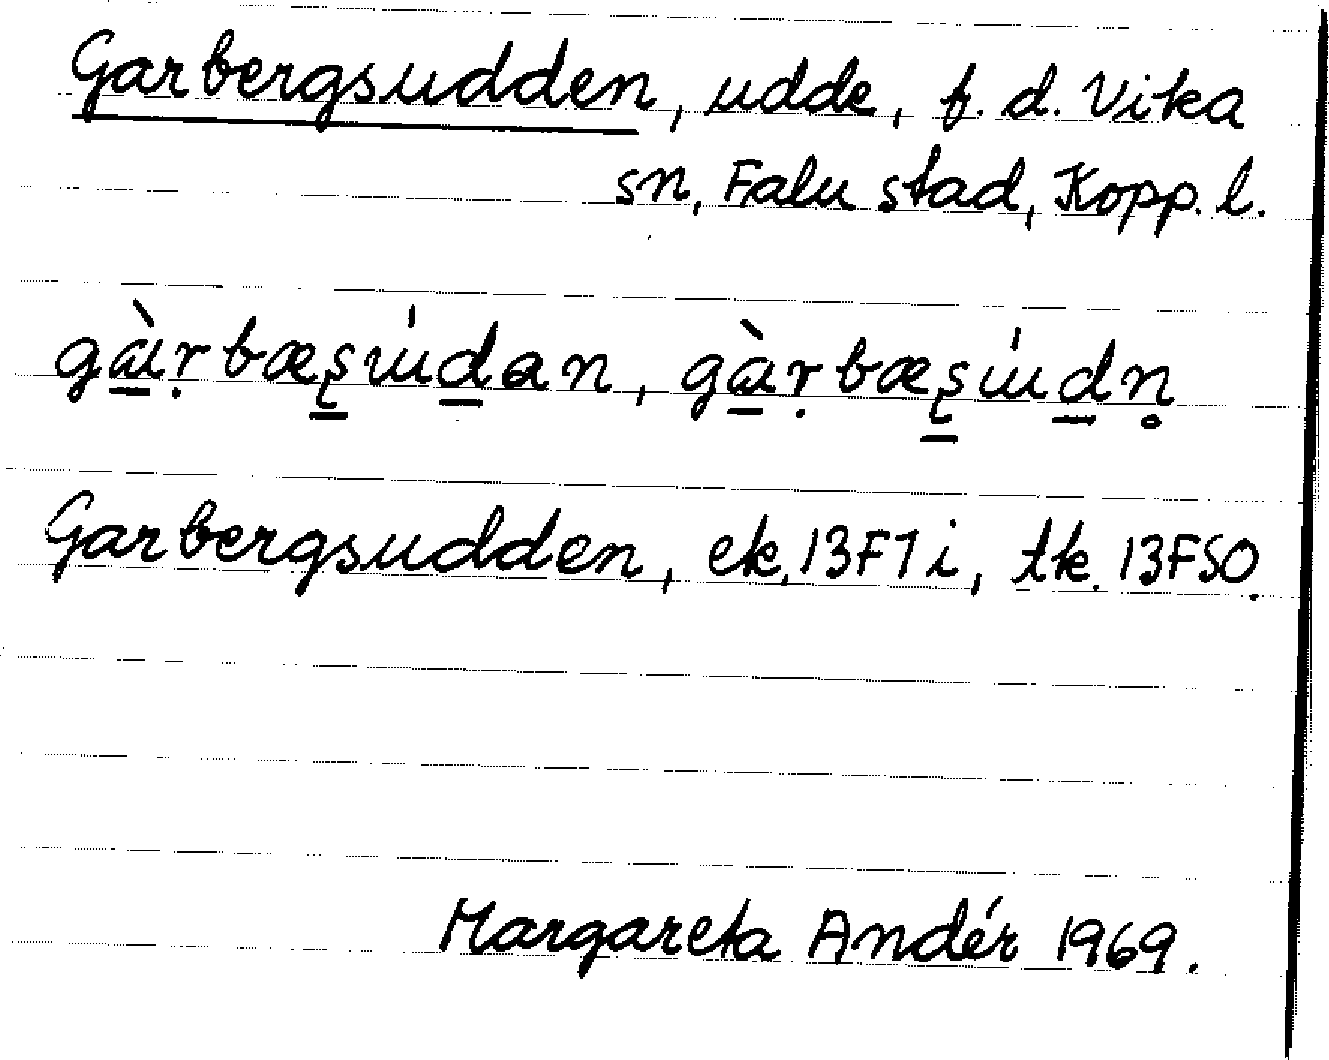 Garbergsudden, udde, f.d. Vika
sn, Falu stad, Kopp. l.
gà̱ṛbæʂ̱ɯ́ḏan, gà̱ṛbæʂ̱ɯ́ḏn̥
Garbergsudden, ek. 13F7i, tk. 13FSO.
Margareta Andér 1969.